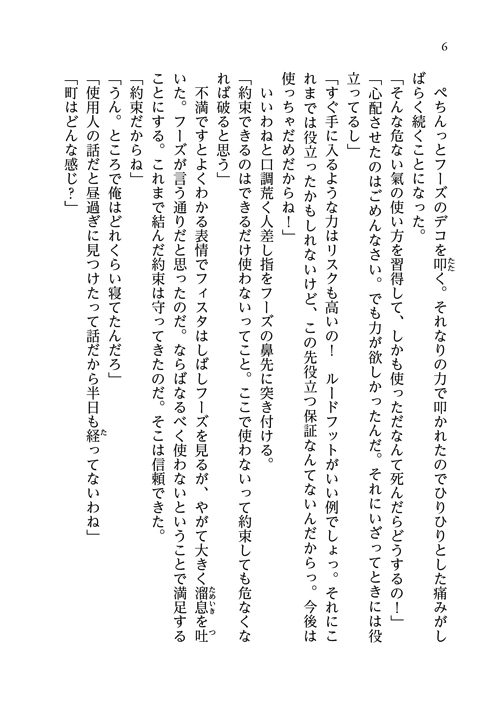 6
　ぺちんっとフーズのデコを叩く。それなりの力で叩かれたのでひりひりとした痛みがし
ばらく続くことになった。
「そんな危ない氣の使い方を習得して、しかも使っただなんて死んだらどうするの！」
「心配させたのはごめんなさい。でも力が欲しかったんだ。それにいざってときには役
立ってるし」
「すぐ手に入るような力はリスクも高いの！　ルードフットがいい例でしょっ。それにこ
れまでは役立ったかもしれないけど、この先役立つ保証なんてないんだからっ。今後は
使っちゃだめだからね！」
　いいわねと口調荒く人差し指をフーズの鼻先に突き付ける。
「約束できるのはできるだけ使わないってこと。ここで使わないって約束しても危なくな
れば破ると思う」
　不満ですとよくわかる表情でフィスタはしばしフーズを見るが、やがて大きく溜息を吐
いた。フーズが言う通りだと思ったのだ。ならばなるべく使わないということで満足する
ことにする。これまで結んだ約束は守ってきたのだ。そこは信頼できた。
「約束だからね」
「うん。ところで俺はどれくらい寝てたんだろ」
「使用人の話だと昼過ぎに見つけたって話だから半日も経ってないわね」
「町はどんな感じ？」